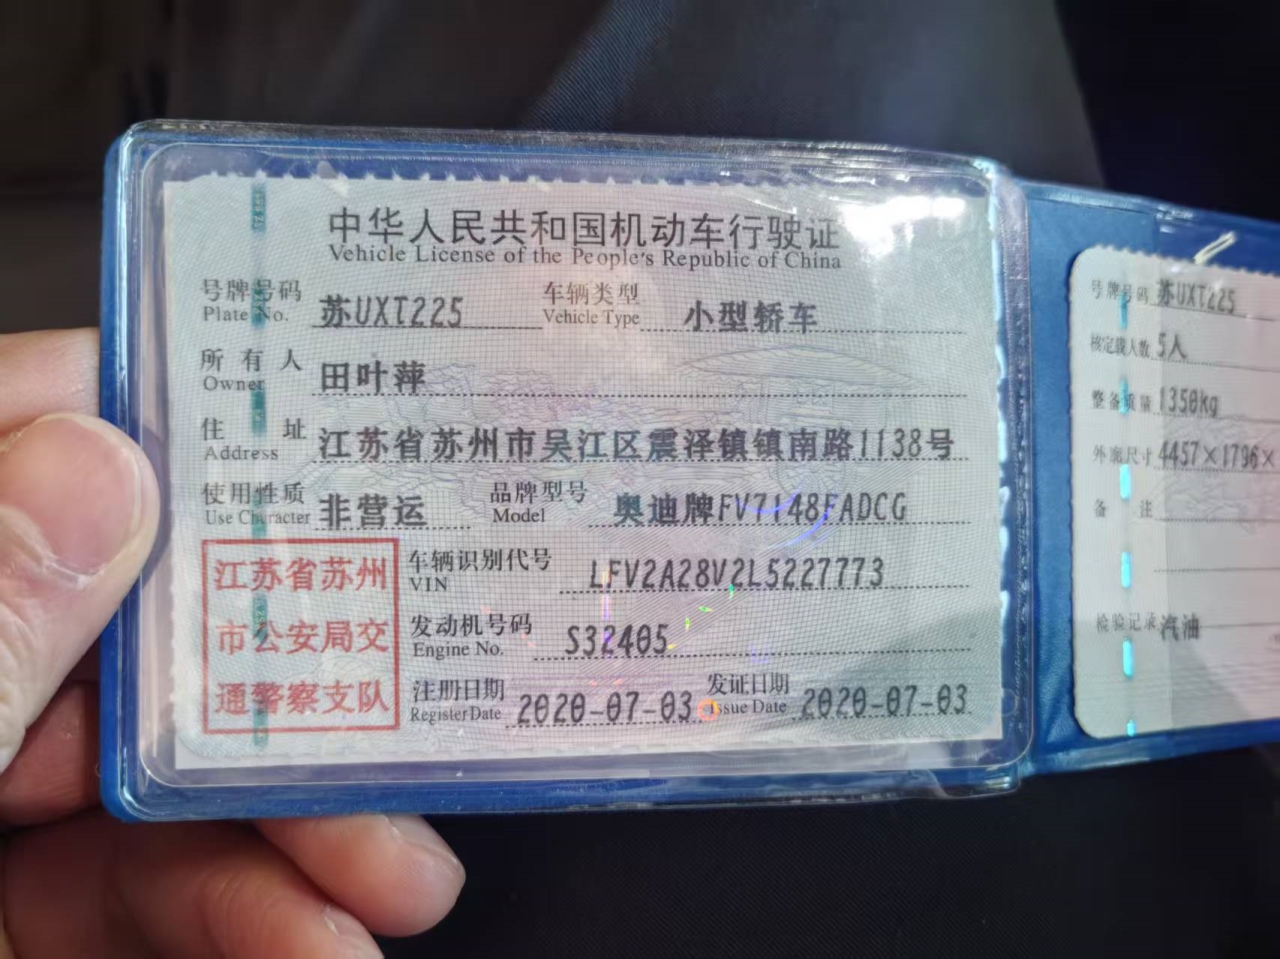 中华人民共和国机动车行驶证
Vehicle License of the People's Republic of China
号牌号码 苏UXT225 车辆类型 小型轿车
Plate No. Vehicle Type
所有人 田叶萍
Owner
住址 江苏省苏州市吴江区震泽镇镇南路1138号
Address
使用性质 非营运 品牌型号 奥迪牌FV7148FADCG
Use Character Model
江苏省苏州
市公安局交
通警察支队
车辆识别代号 LFV2A28V2L5227773
VIN
发动机号码 S32405
Engine No.
注册日期 2020-07-03 发证日期 2020-07-03
Register Date Issue Date
号牌号码 苏UXT225
核定载人数 5人
整备质量 1350kg
外廓尺寸 4457×1796×
备注
检验记录 汽油